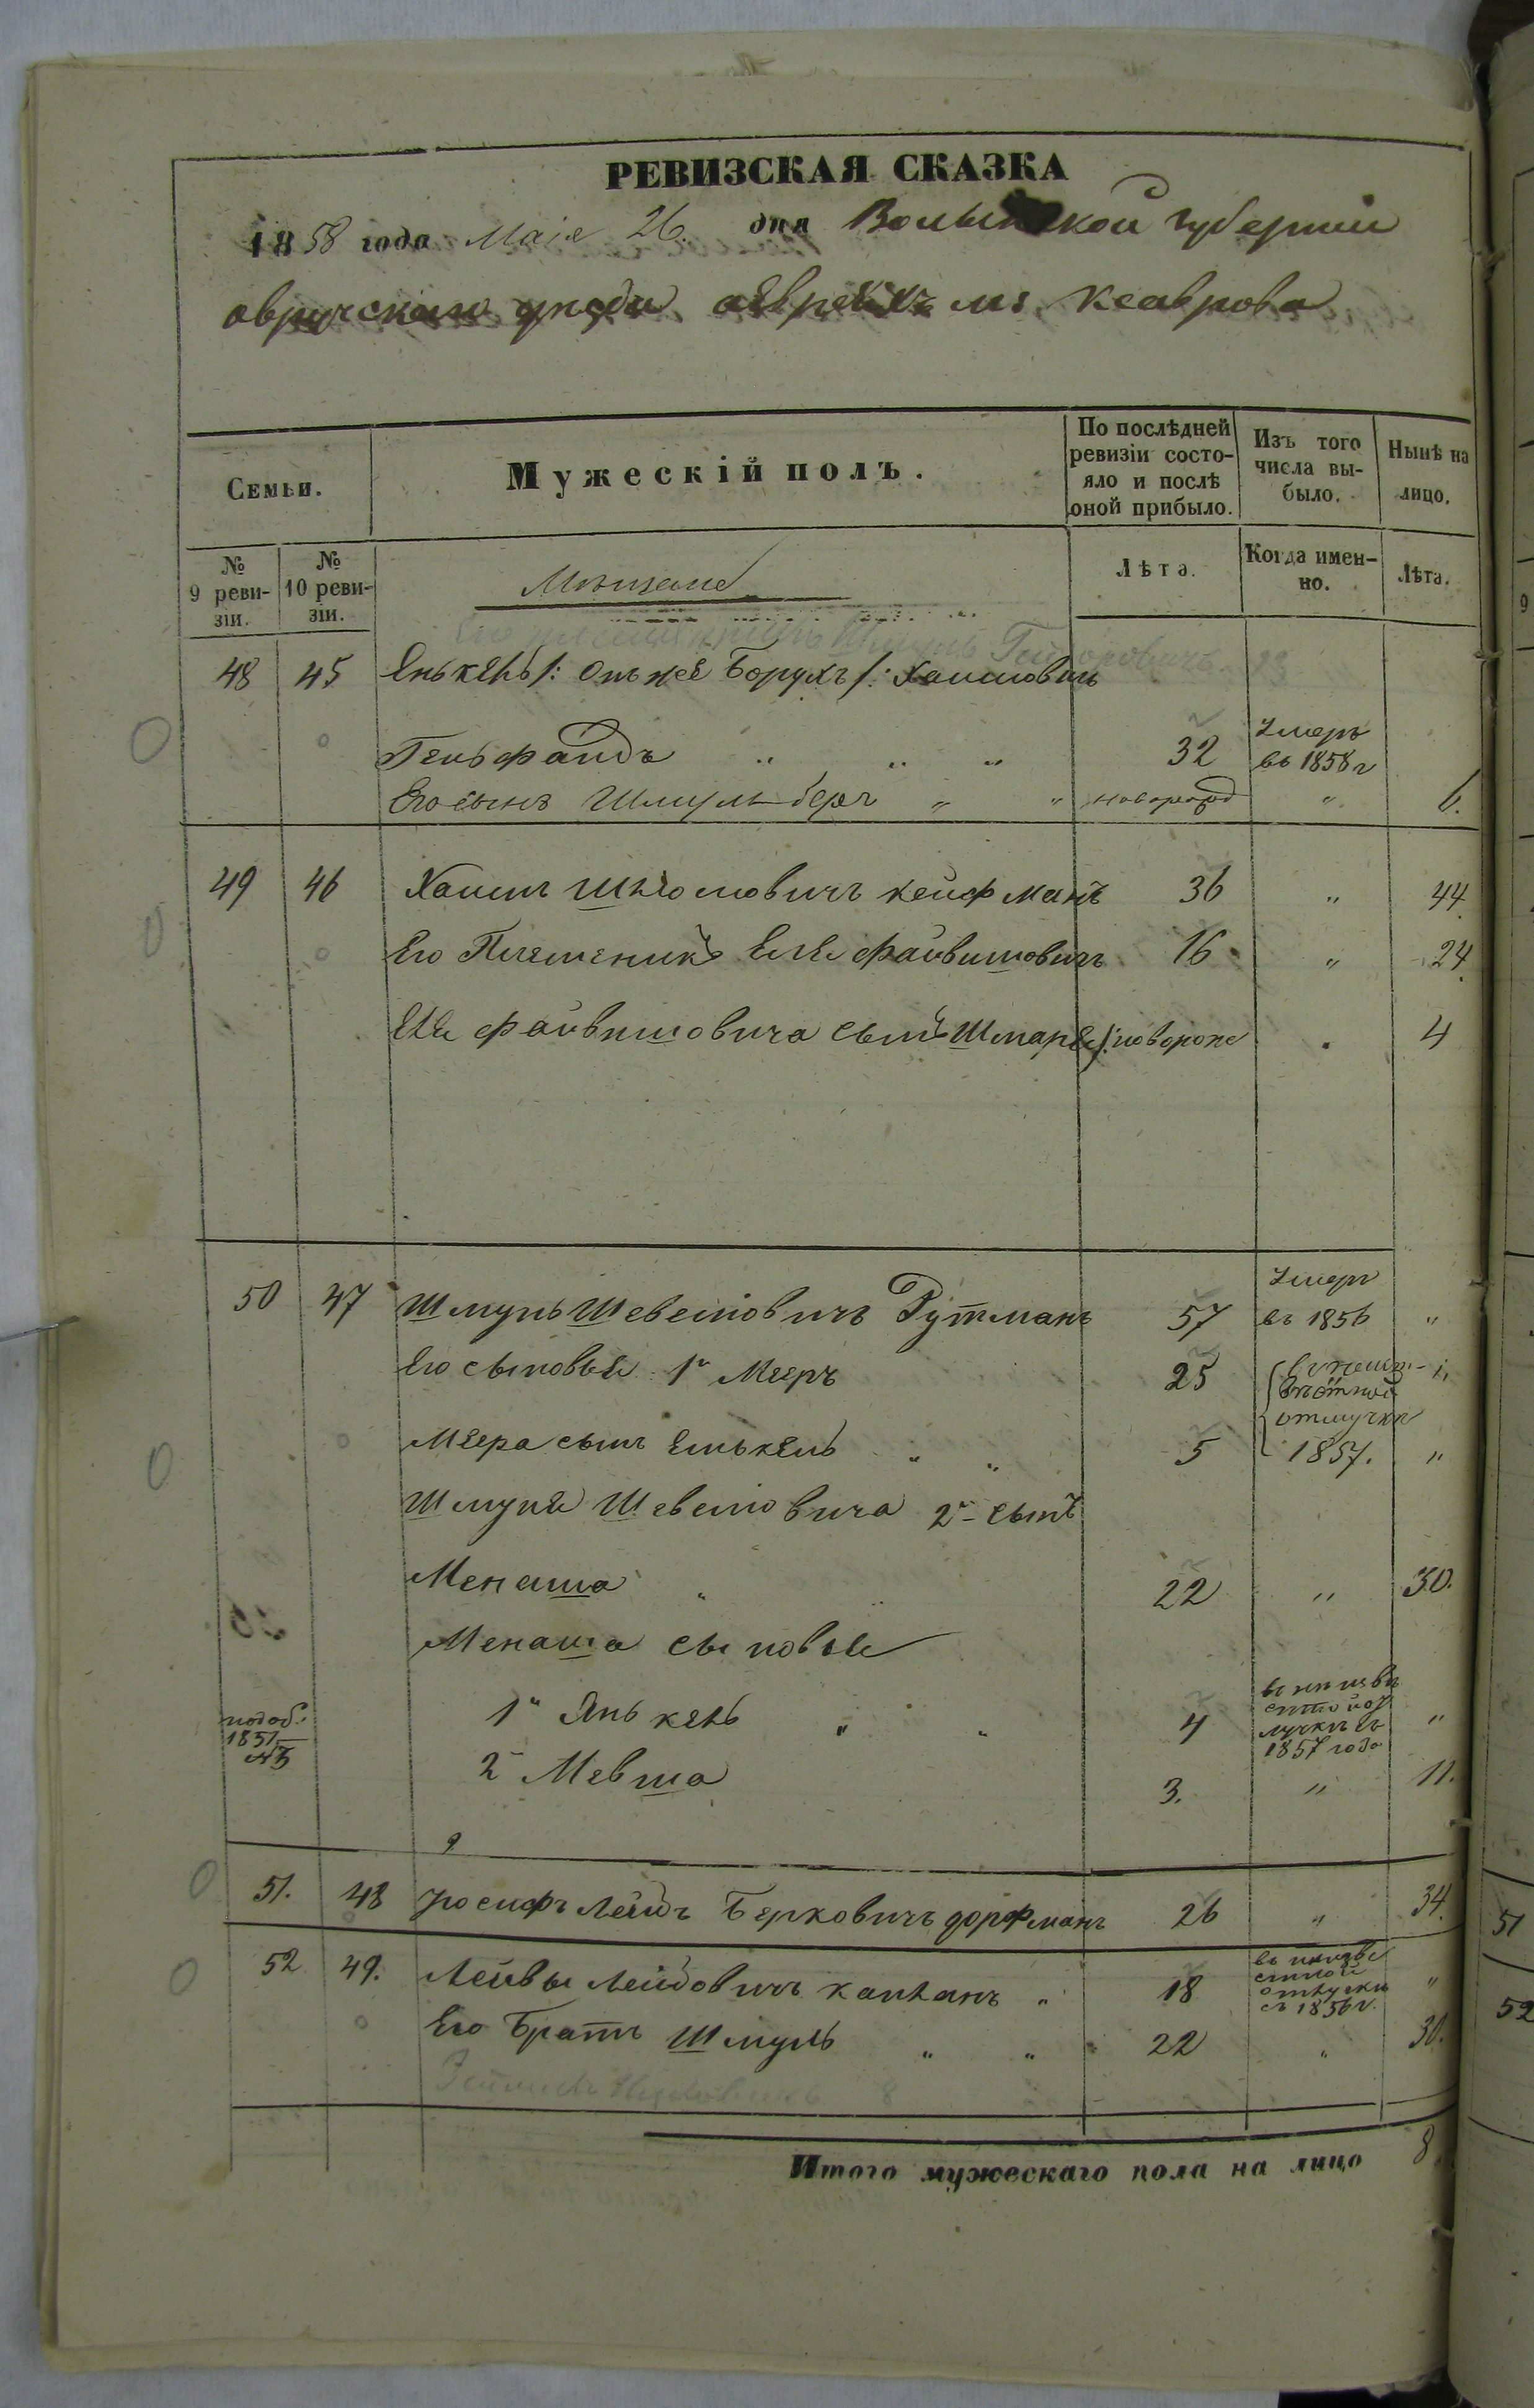 РЕВИЗСКАЯ СКАЗКА
1858 года Маія 26. дня Волынской губерніи
овручскаго уезда о евреяхъ м.
Семьи.
Мужескій полъ.
По послѣдней ревизіи состояло и послѣ оной прибыло.
Изъ того числа выбыло.
Нынѣ на лицо.
№ 9 ревизіи.
№ 10 ревизіи.
Мещане
Лѣта.
Когда именно.
Лѣта.
48 45 Янкель /: Онъ же Борухъ /: Хаимовичъ
Гельфандъ " " " 32 Умеръ въ 1858 г
Его сынъ Шмуль беръ " " новорожд " 6.
49 46 Хаимъ Шліомовичъ Кейфманъ 36 " 44.
Его Племеникъ Еля Файвишовичъ 16 " 24.
Еля Файвишовича сынъ новорож 4
50 47 Шмуль Шевелiовичъ Рутманъ 57 Умеръ въ 1856 "
Его сыновья 1й Мееръ 25 "
Меера сынъ Енькель " " 5 отлучки 1857. "
Шмуля Шевелiовича 2й сынъ
Менаша " 22 " 30.
Менаша сыновья
1й Янькель " " 4 въ неизвестной отлучкъ съ 1857 года "
2й Мевша 3. " 11.
1851
51. 48 Іосифъ Лейбъ Берковичъ дорфманъ 26 " 34.
52 49. Лейвы Лейбовичъ Капланъ " 18 въ неизвестной отлучки съ 1856 г. "
Его Братъ Шмуль " " 22 " 30.
Итого мужескаго пола на лицо 8
51
52